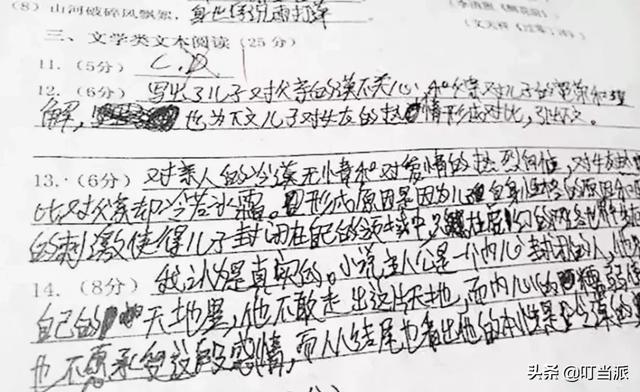 (8)山河破碎风飘絮,身世浮沉雨打萍
三、文学类文本阅读(25分)
11.(5分) C.D
12.(6分) 写出了儿子对父亲的漠不关心,和父亲对儿子的宽荣和理
解,也为下文儿子对女友的热情形成对比,引下文。
13.(6分) 对亲人的冷漠无情和对爱情的热烈向往,对女友
比对父亲却冷若冰霜。形成原因是因为儿子自身性格的原因
的刺激使得儿子封闭在自己的领域中
14.(8分) 我认为是真实的。小说主人公是一个内心封闭的人,他
自己的天地里,他不敢走出这片天地,而内心的
也不愿承受这段感情,而从结尾也看出他的本性是冷漠的
头条@叮当派